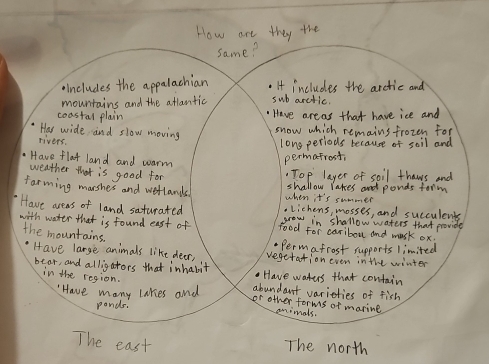 How are they the
same?
• Includes the appalachian
mountains and the atlantic
coastal plain
• Has wide and slow moving
rivers.
• Have flat land and warm
weather that is good for
farming marshes and wetlands.
• Have areas of land saturated
with water that is found east of
the mountains.
• Have large animals like deer,
bear, and alligators that inhabit
in the region.
• Have many lakes and
ponds.
The east
• It includes the arctic and
sub arctic.
• Have areas that have ice and
snow which remains frozen for
long periods because of soil and
permafrost.
• Top layer of soil thaws and
shallow lakes and ponds form
when it's summer
• Lichens, mosses, and succulents
grow in shallow waters that provide
food for caribou and musk ox.
• Permafrost supports limited
vegetation even in the winter
• Have waters that contain
abundant varieties of fish
or other forms of marine
animals.
The north